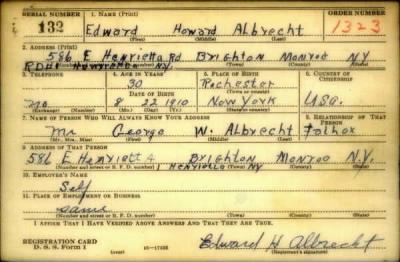 SERIAL NUMBER 1. NAME (Print) ORDER NUMBER
132 Edward Howard Albrecht 1323
(First) (Middle) (Last)
2. ADDRESS (Print)
586 E Henrietta Rd Brighton Monroe NY
RD#1 Henrietta NY.
(Number and street or R. F. D. number) (Town) (County) (State)
3. TELEPHONE 4. AGE IN YEARS 5. PLACE OF BIRTH 6. COUNTRY OF CITIZENSHIP
30 Rochester
DATE OF BIRTH (Town or county)
no 8 22 1910 New York U.S.A.
(Exchange) (Number) (Mo.) (Day) (Yr.) (State or country)
7. NAME OF PERSON WHO WILL ALWAYS KNOW YOUR ADDRESS 8. RELATIONSHIP OF THAT PERSON
Mr George W. Albrecht Father
(Mr., Mrs., Miss) (First) (Middle) (Last)
9. ADDRESS OF THAT PERSON
586 E Henrietta Brighton Monroe N.Y.
1 Henrietta NY
(Number and street or R. F. D. number) (Town) (County) (State)
10. EMPLOYER'S NAME
Self
11. PLACE OF EMPLOYMENT OR BUSINESS
Same
(Number and street or R. F. D. number) (Town) (County) (State)
I AFFIRM THAT I HAVE VERIFIED ABOVE ANSWERS AND THAT THEY ARE TRUE.
REGISTRATION CARD
D. S. S. Form 1 (over) 16-17105 Edward H Albrecht
(Registrant's signature)